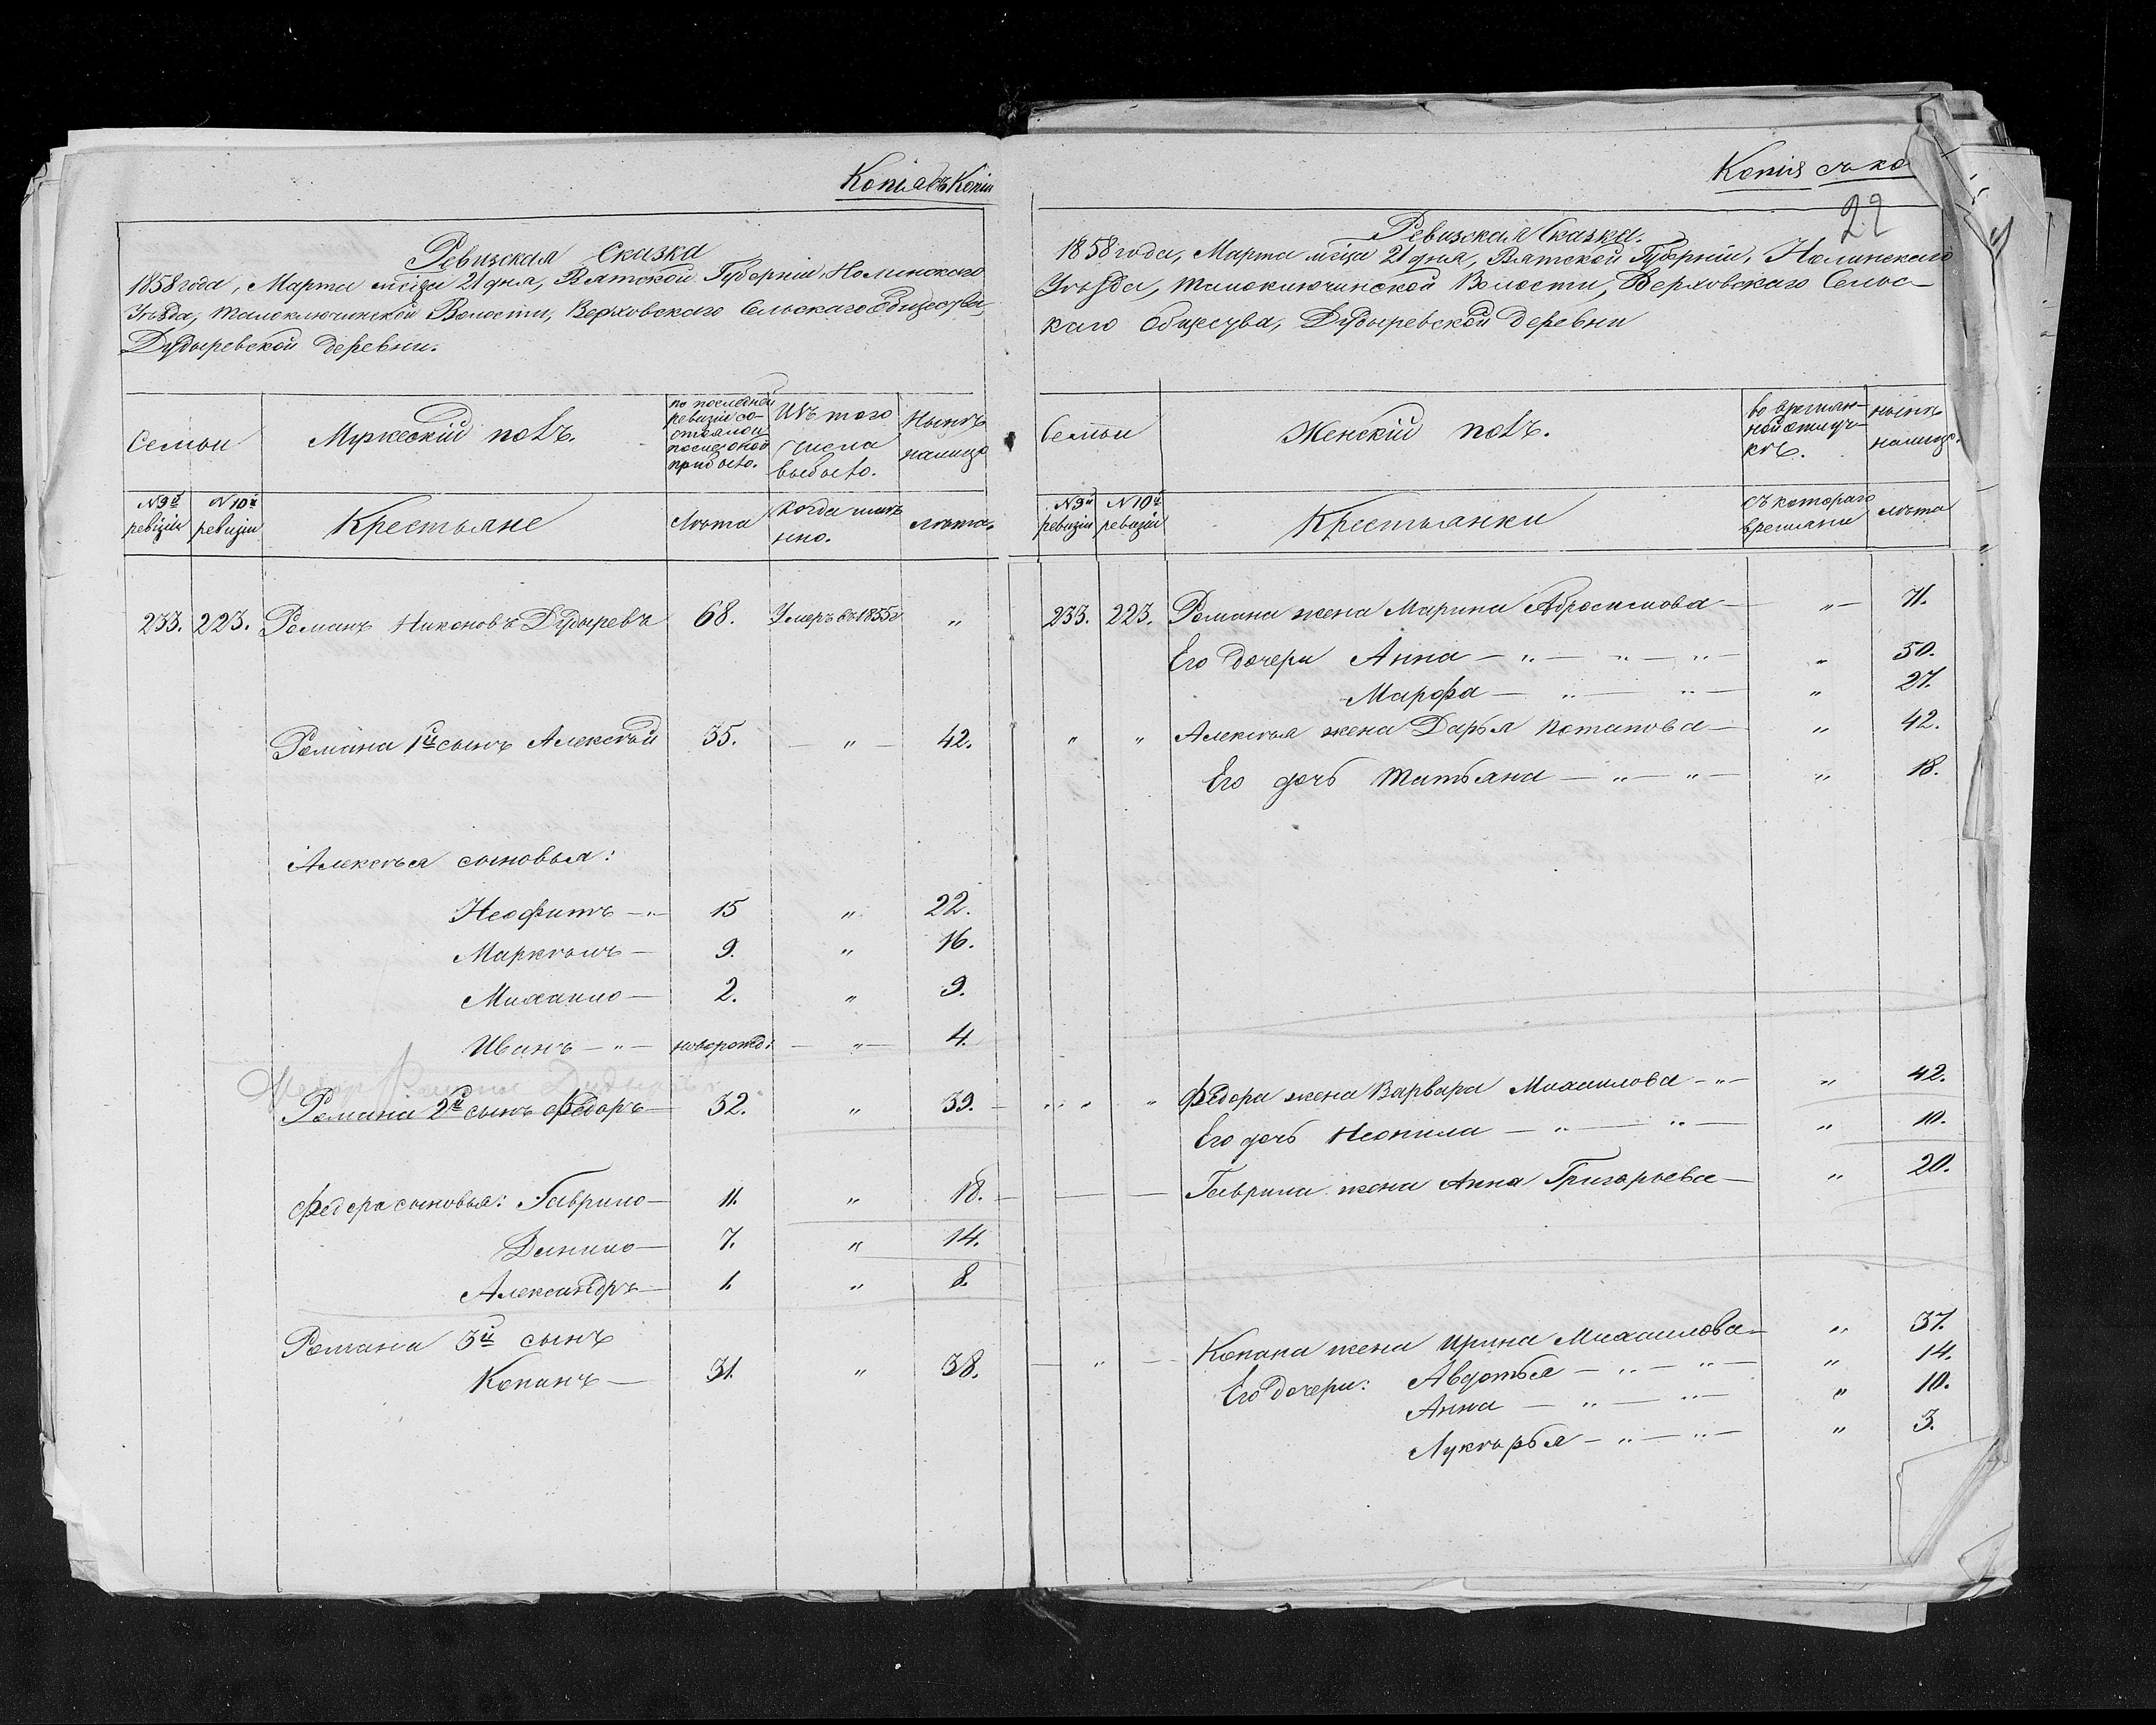 Копія съ Копіи
Ревизская Сказка
1858 года, Марта мѣсяца 21 дня, Вятской Губерніи, Нолинскаго
Уѣзда, Талоключинской Волости, Верховскаго Сельскаго Общества,
Дудыревской деревни.
Семьи
Мужескій полъ.
по последней
ревизіи со-
стояло и
после оной
прибыло.
Изъ того
числа
выбыло.
Нынѣ
налицо
№ 9й
ревизіи
№ 10й
ревизіи
Крестьяне
Лѣта
когда имян-
но.
лѣта.
233. 223. Романъ Никоновъ Дудыревъ 68. Умеръ въ 1855 г „
Романа 1й сынъ Алексѣй 35. — „ — 42.
Алексѣя сыновья:
Неофитъ — „ 15 „ 22.
Маркѣлъ — 9. „ 16.
Михаило — 2. „ 9.
Иванъ — „ — новорожд: — „ — 4.
Федор Романов Дудырев
Романа 2й сынъ Федоръ — 32. „ 39. —
Федора сыновья: Гаврило — 11. „ 18. —
Данило — 7. „ 14.
Александръ — 1. „ 8.
Романа 3й сынъ
Конанъ — 31. „ 38.
Копия съ ко
22
Ревизская Сказка.
1858 года, Марта мѣсяца 21 дня, Вятской Губерніи, Нолинскаго
Уѣзда, Талоключинской Волости, Верховскаго Сельс-
каго Общества, Дудыревской деревни
Семьи
Женскій полъ.
во времян-
ной отлуч-
кѣ.
нынѣ
налицо.
№ 9й
ревизіи
№ 10й
ревизіи
Крестьянки
съ котораго
времяни
лѣта
233. 223. Романа жена Марина Абросимова — „ — 71.
Его дочери Анна — „ — „ — „ — „ 50.
Марфа — „ — „ — „ 27.
„ „ Алексѣя жена Дарья Потапова — „ 42.
Его дочь Татьяна — „ — „ — „ 18.
„ „ „ Федора жена Варвара Михаилова — „ — „ 42.
Его дочь Неонила — „ — „ — „ 10.
— — Гаврила жена Анна Григорьева — „ 20.
— „ — Конана жена Ирина Михаилова — „ 37.
Его дочери: Авдотья — „ — „ — „ 14.
Анна — „ — „ — „ 10.
Лукѣрья — „ — „ — „ 3.